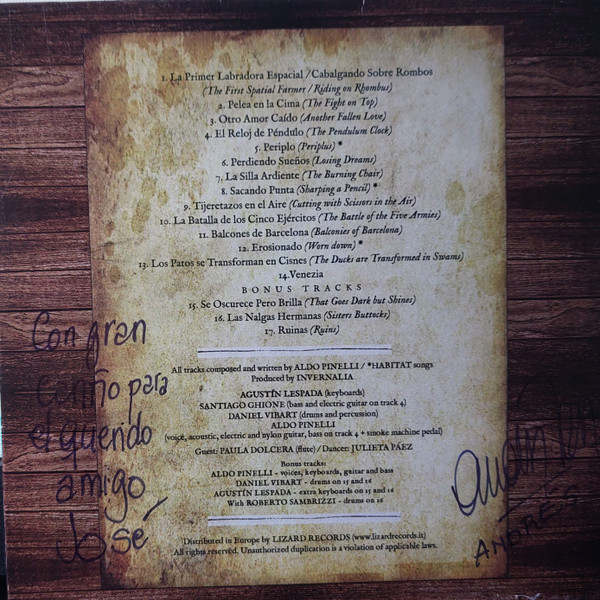 1. La Primer Labradora Espacial / Cabalgando Sobre Rombos
(The First Spatial Farmer / Riding on Rhombus)
2. Pelea en la Cima (The Fight on Top)
3. Otro Amor Caído (Another Fallen Love)
4. El Reloj de Péndulo (The Pendulum Clock)
5. Periplo (Periplus) *
6. Perdiendo Sueños (Losing Dreams)
7. La Silla Ardiente (The Burning Chair)
8. Sacando Punta (Sharping a Pencil) *
9. Tijeretazos en el Aire (Cutting with Scissors in the Air)
10. La Batalla de los Cinco Ejércitos (The Battle of the Five Armies)
11. Balcones de Barcelona (Balconies of Barcelona)
12. Erosionado (Worn down) *
13. Los Patos se Transforman en Cisnes (The Ducks are Transformed in Swams)
14. Venezia
BONUS TRACKS
15. Se Oscurece Pero Brilla (That Goes Dark but Shines)
16. Las Nalgas Hermanas (Sisters Buttocks)
17. Ruinas (Ruins)
All tracks composed and written by ALDO PINELLI / *HABITAT songs
Produced by INVERNALIA
AGUSTÍN LESPADA (keyboards)
SANTIAGO GHIONE (bass and electric guitar on track 4)
DANIEL VIBART (drums and percussion)
ALDO PINELLI
(voice, acoustic, electric and nylon guitar, bass on track 4 + smoke machine pedal)
Guest: PAULA DOLCERA (flute) / Dancer: JULIETA PÁEZ
Bonus tracks:
ALDO PINELLI - voices, keyboards, guitar and bass
DANIEL VIBART - drums on 15 and 16
AGUSTÍN LESPADA - extra keyboards on 15 and 16
With ROBERTO SAMBRIZZI - drums on 16
Distributed in Europe by LIZARD RECORDS (www.lizardrecords.it)
All rights reserved. Unauthorized duplication is a violation of applicable laws.
Con gran
cariño para
el querido
amigo
José